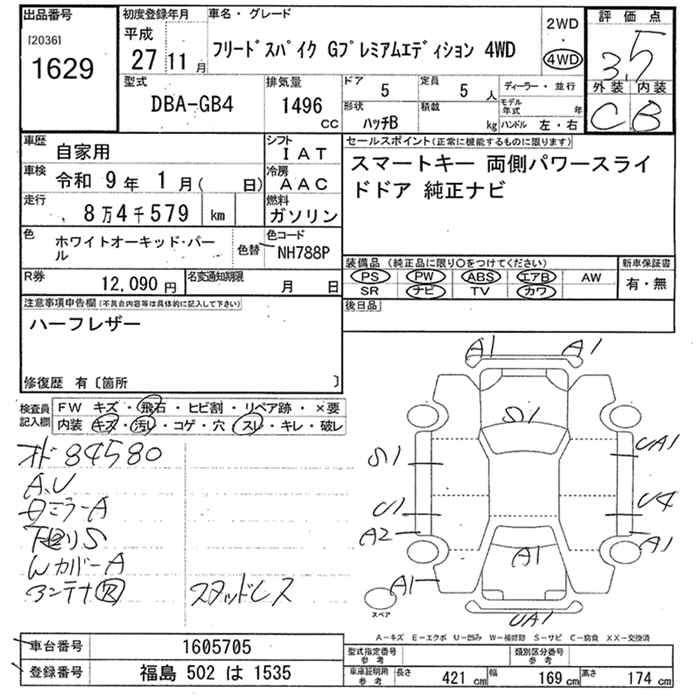 出品番号
[2036]
1629
初度登録年月
平成
27 11 月
車名・グレード
フリードスパイク Gプレミアムエディション 4WD
2WD
・
4WD
評価点
3.5
外装 内装
C B
型式
DBA-GB4
排気量
1496
cc
ドア
5
定員
5 人
形状
ハッチB
積載
kg
ディーラー・並行
モデル年式 年
ハンドル 左・右
車歴
自家用
シフト
IAT
車検
令和 9 年 1 月( 日)
冷房
AAC
走行
8 万 4 千 579 km
燃料
ガソリン
色
ホワイトオーキッド・パール
色替
色コード
NH788P
R券
12,090 円
名変通知期限
月 日
セールスポイント(正常に機能するものに限ります)
スマートキー 両側パワースライ
ドドア 純正ナビ
装備品(純正品に限り○をつけてください)
PS PW ABS エアB AW
SR ナビ TV カワ
新車保証書
有・無
後日品
注意事項申告欄(不具合内容等は具体的に記入して下さい)
ハーフレザー
修復歴 有〔箇所 〕
検査員
記入欄
FW キズ・飛石・ヒビ割・リペア跡・×要
内装 キズ・汚し・コゲ・穴・スレ・キレ・破レ
オド 84580
A.U
ミラーA
S
WカバーA
アンテナR
スタッドレス
A1 A1
S1
S1
UA1
U1
U4
A2
A1
A1
A1
UA1
スペア
A－キズ E－エクボ U－凹み W－補修跡 S－サビ C－腐食 XX－交換済
車台番号
1605705
登録番号
福島 502 は 1535
型式指定番号
参考
類別区分番号
参考
車庫証明用
参考
長さ 421 cm 幅 169 cm 高さ 174 cm